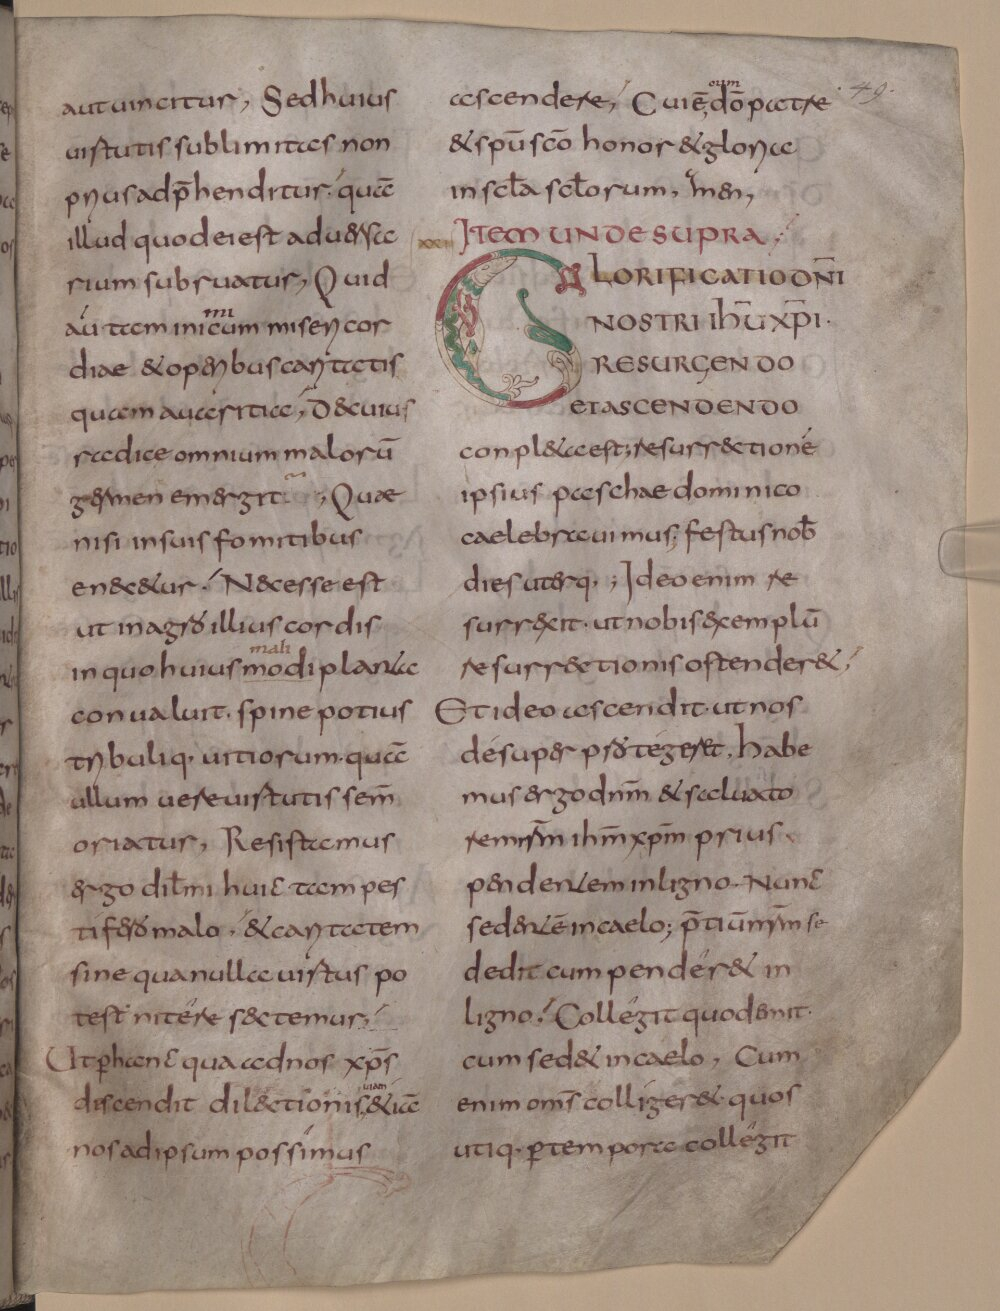 aut uincitur, Sed huius
uirtutis sublimitas non
prius adp̄henditur. quā
illud quod ei est aduersa
rium subruatur, Quid
autem inimicum misericor
diae & operibus caritatis
quam auaritia, De cuius
radice omnium malorū
germen emergit, Quae
nisi in suis fomitibus
enecetur. Necesse est
ut in agro illius cordis
mali
in quo huiusmodi planta
conualuit. spine potius
tribuliq. uitiorum. quā
ullum uere uirtutis sem̄
oriatur, Resistamus
ergo dil̄mi huic tam pes
tifero malo. & caritatem
sine qua nulla uirtus po
test nitere sectemur,
Ut per hanc qua ad nos xp̄s
discendit dilectionis uiam & iā
nos ad ipsum possimus
ascendere, Cui ē cum dō patre
49.
& spū scō honor & gloria
in scl̄a scl̄orum, Amen,
xxii ITEM UNDE SUPRA,
GLORIFICATIO DN̄I
NOSTRI IHŪ XP̄I.
RESURGENDO
ET ASCENDENDO
conpleta est; resurrectionē
ipsius paschae dominico
caelebrauimus; festus nob̄
dies uterq.; Ideo enim re
surrexit. ut nobis exemplū
resurrectionis ostender&,
Et ideo ascendit. ut nos
desuper protegeret. habe
mus ergo dnm̄ & saluato
rem nrm̄ ihm̄ xpm̄ prius
pendentem in ligno. Nunc
sedentē in caelo; p̄tiū nrm̄ se
dedit cum pender& in
ligno. Collegit quod emit.
cum sed& in caelo, Cum
enim oms̄ colliger& quos
utiq. per tempora collegit